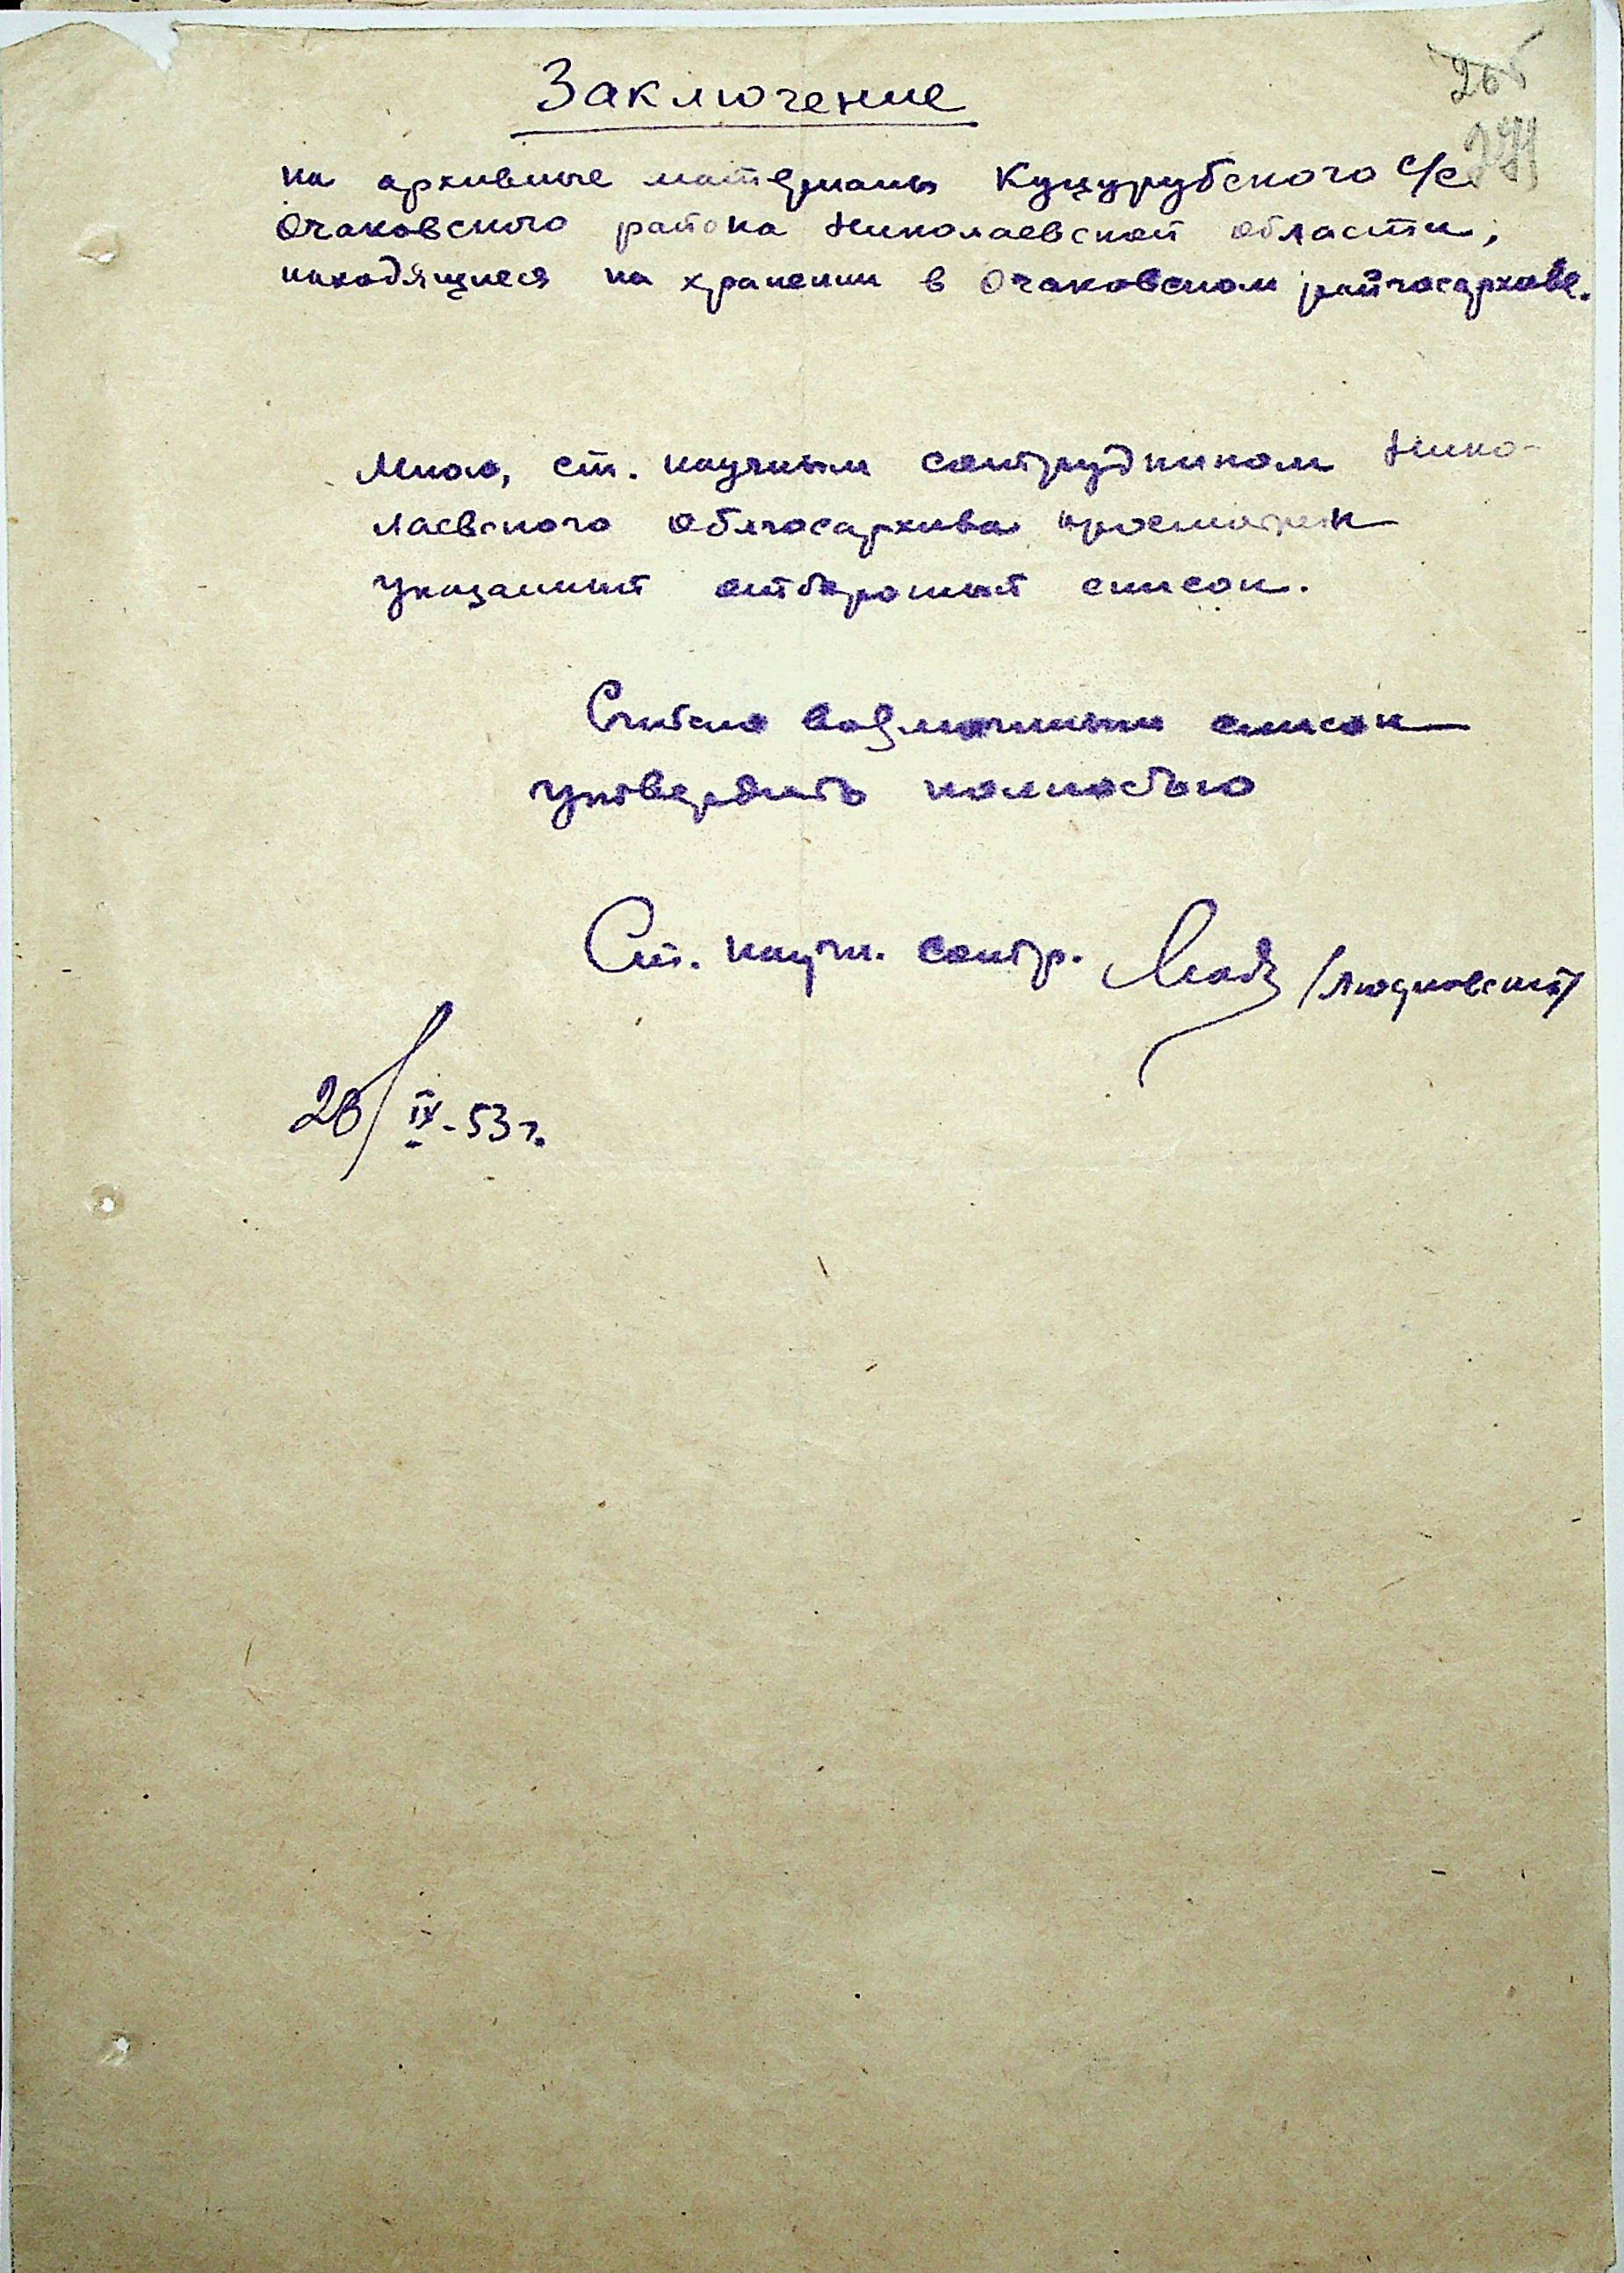 Заключение
на архивные материалы Куцурубского с/с
Очаковского района Николаевской области,
находящиеся на хранении в Очаковском райгосархиве.
Мною, ст. научным сотрудником Нико-
лаевского облгосархива просмотрен
указанный отборочный список.
Считаю возможным список
утвердить полностью
Ст. научн. сотр.
28/IX-53 г.